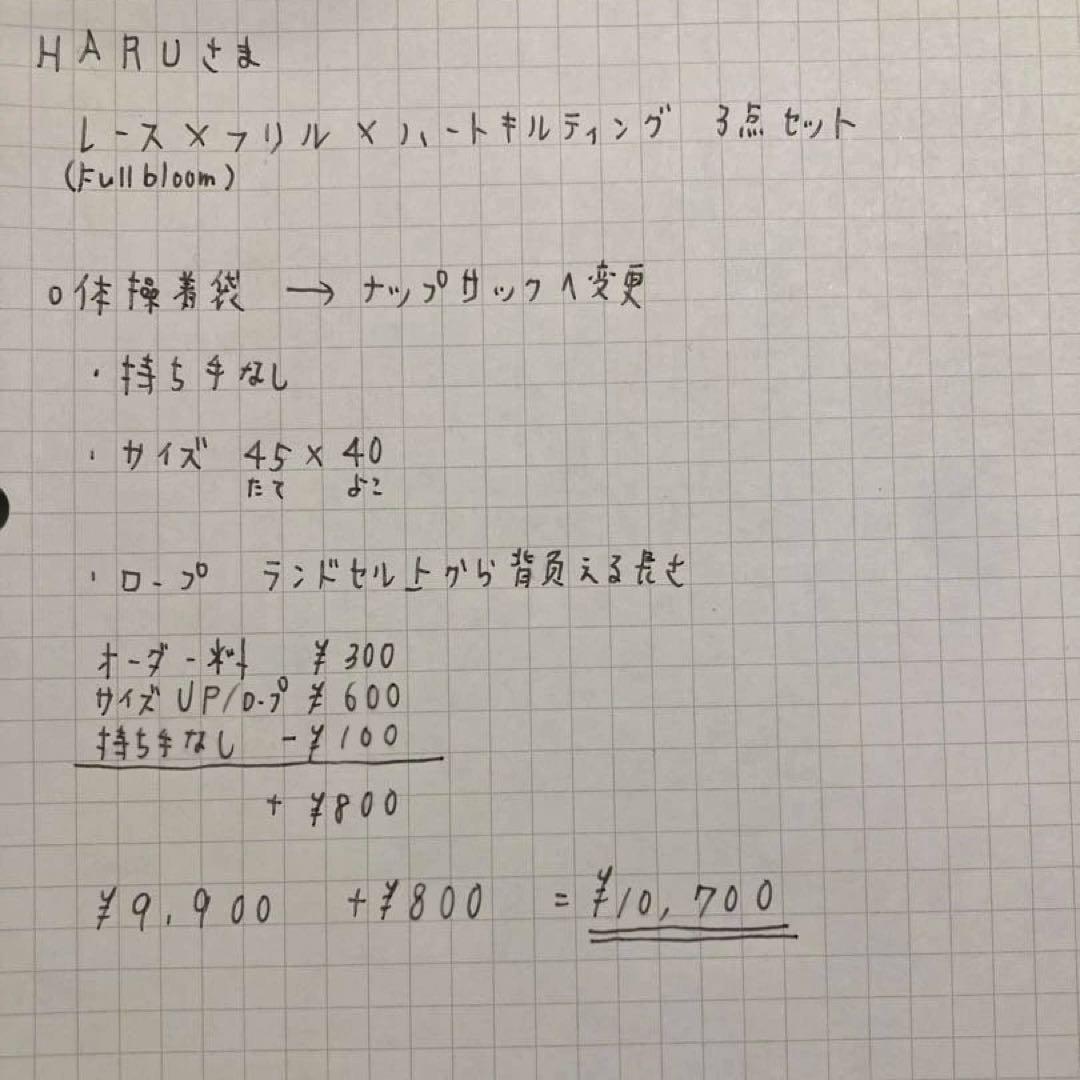 HARUさま
レース×フリル×ハートキルティング 3点セット
(Full bloom)
○体操着袋 → ナップサックへ変更
・持ち手なし
・サイズ 45×40
たて よこ
・ロープ ランドセル上から背負える長さ
オーダー料 ¥300
サイズUP/ロープ ¥600
持ち手なし -¥100
+ ¥800
¥9,900 +¥800 = ¥10,700